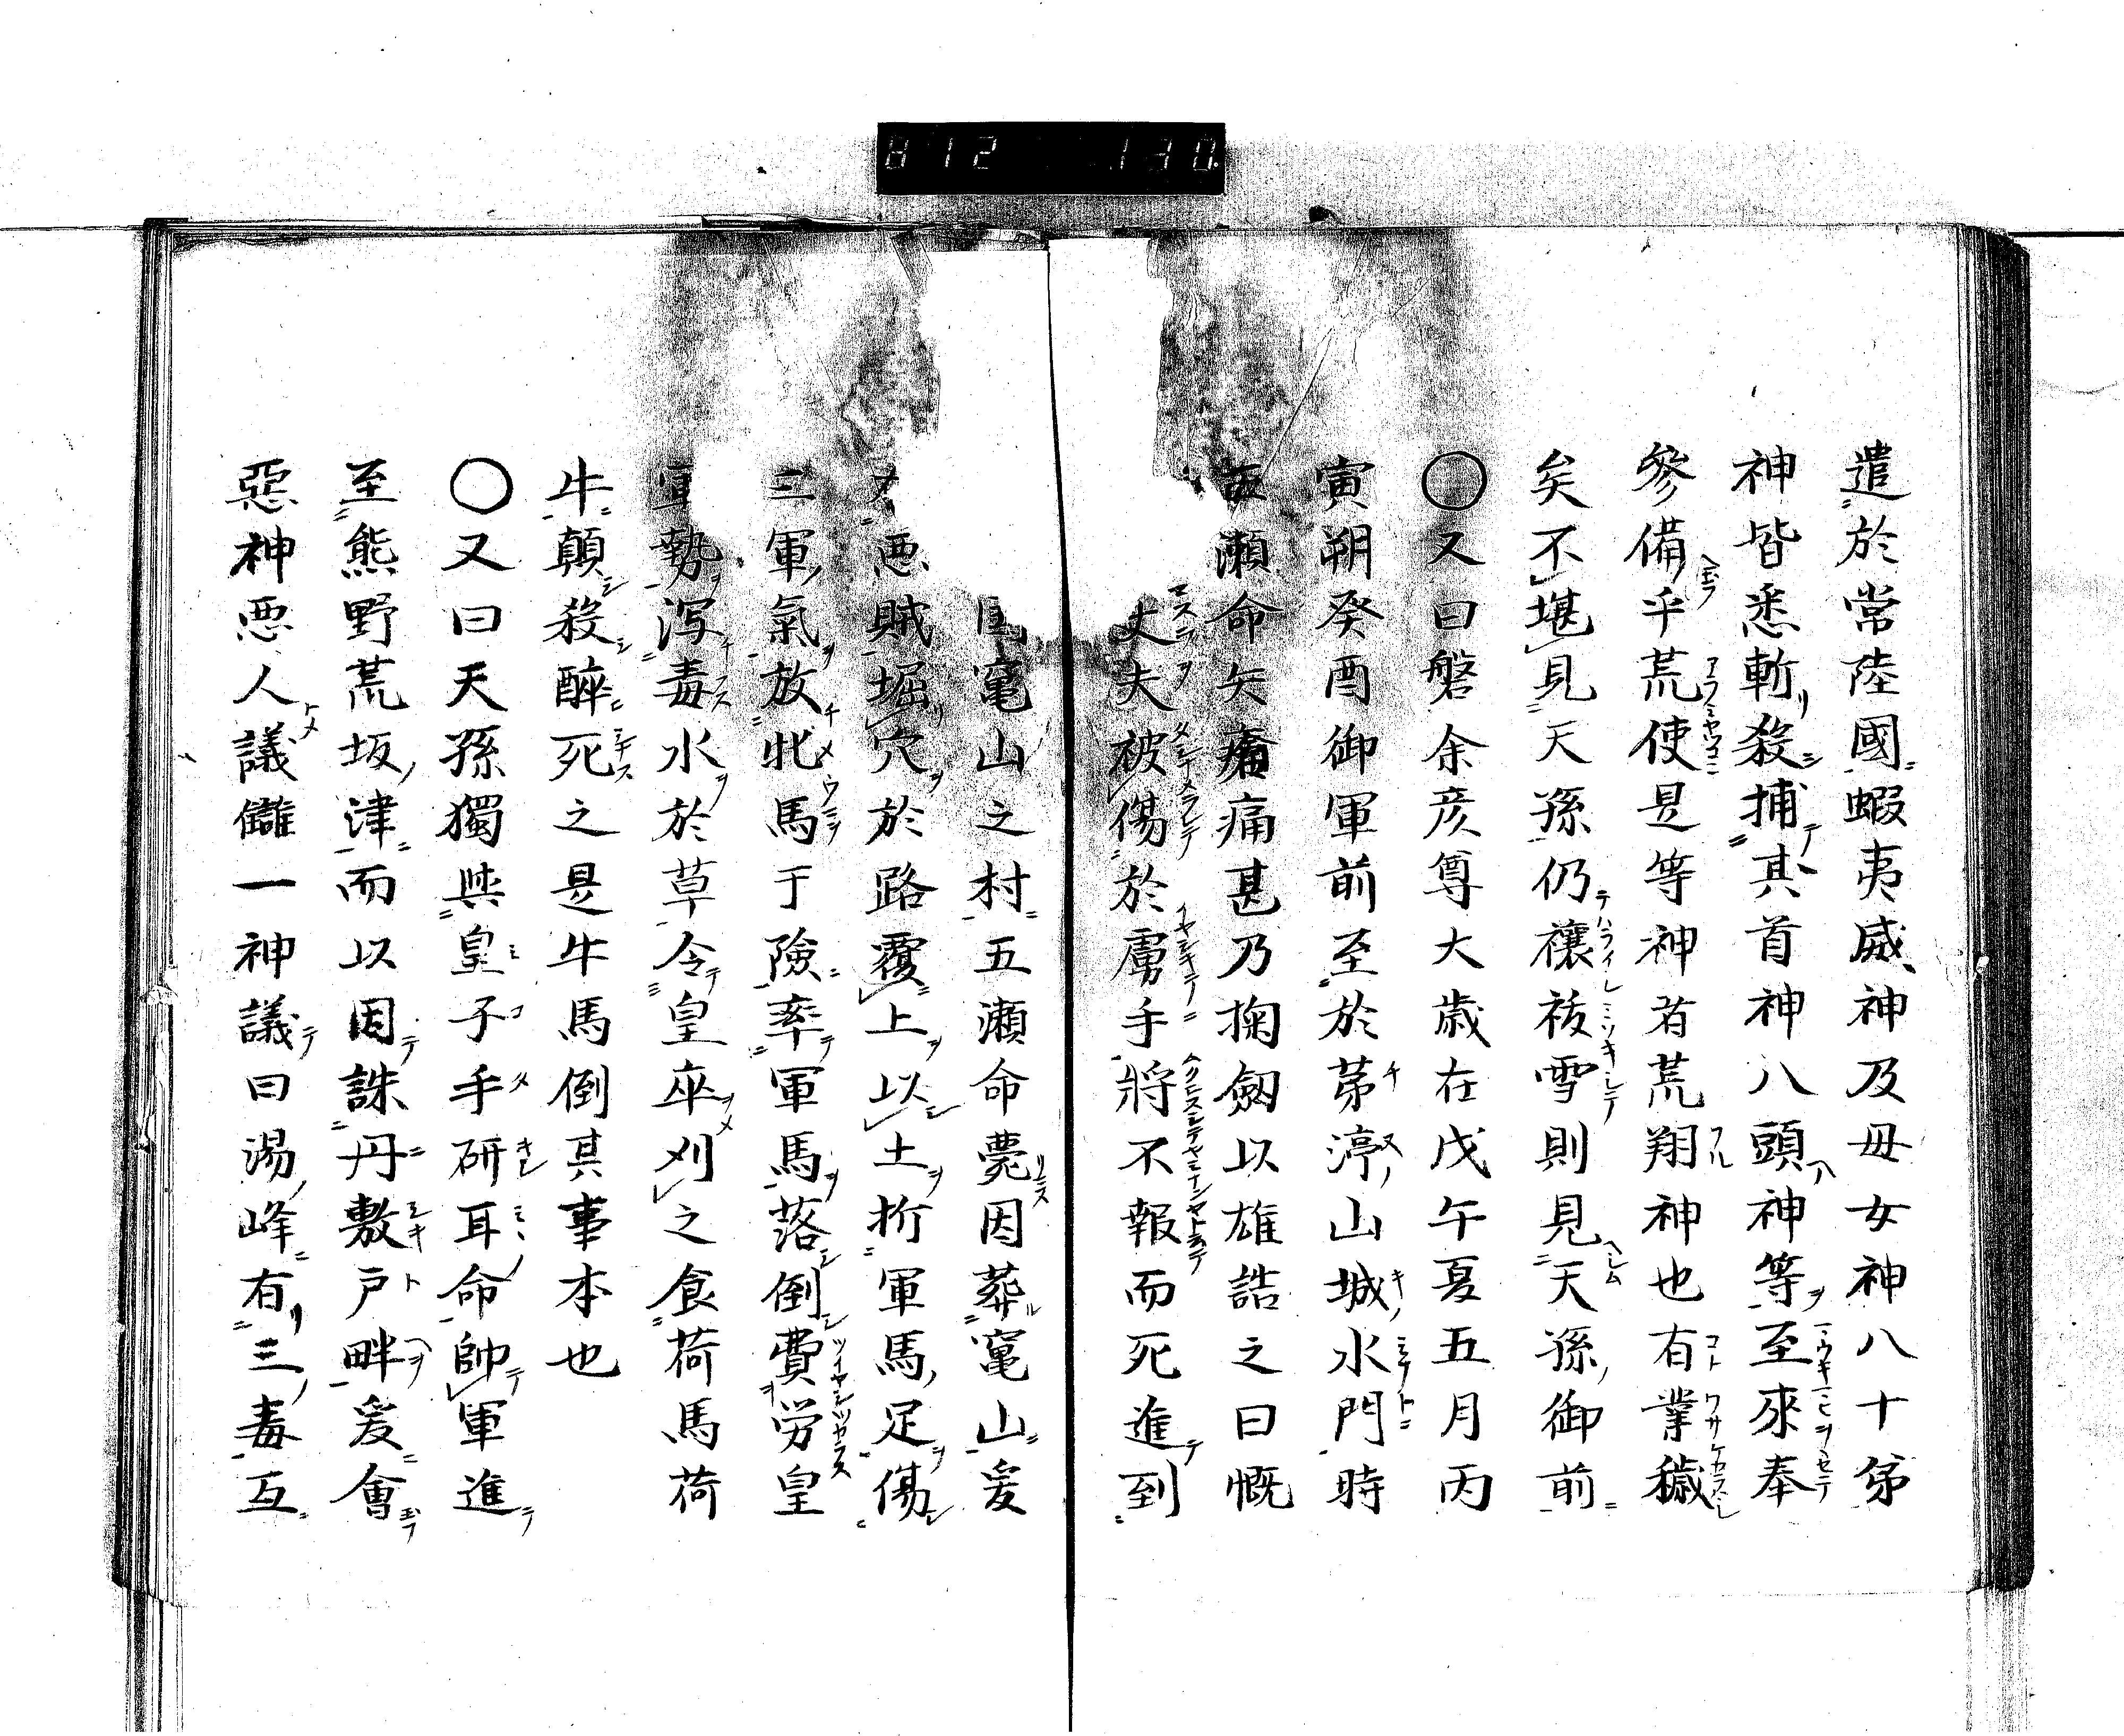 812 130.
遣於常陸國蝦夷威神及毋女神八十弟
神皆悉斬殺捕其首神八頭神等至來奉
參備乎荒使是等神者荒翔神也有業穢
矣不堪見天孫仍禳祓雪則見天孫御前
〇又曰磐余彦尊大歳在戊午夏五月丙
寅朔癸酉御軍前至於茅渟山城水門時
瀬命矢瘡痛甚乃掬劔以雄誥之曰慨
丈夫被傷於虜手將不報而死進到
國竃山之村五瀬命薨因葬竃山爰
悪賊堀穴於路覆上以土折軍馬足傷
三軍氣放牝馬于險率軍馬落倒費労皇
軍勢泻毒水於草令皇卒刈之食荷馬荷
牛顛殺醉死之是牛馬倒其事本也
〇又曰天孫獨與皇子手研耳命帥軍進
至熊野荒坂津而以因誅丹敷戸畔爰會
惡神悪人議讎一神議曰湯峰有三毒互